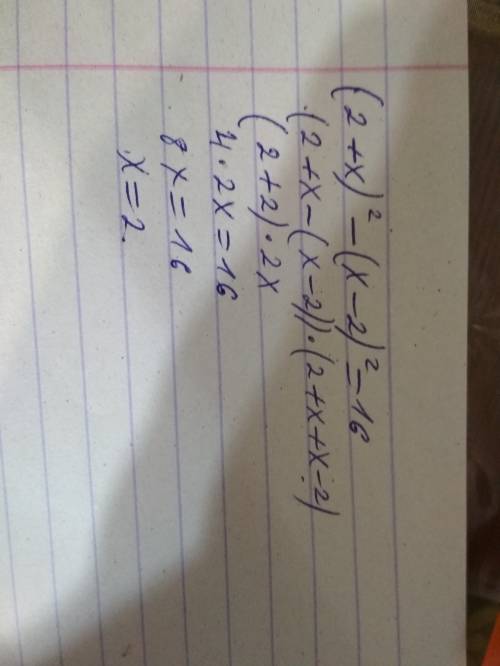 (2+x)² - (x-2)² = 16
(2+x-(x-2))·(2+x+x-2)
(2+2)·2x
4·2x=16
8x=16
x=2